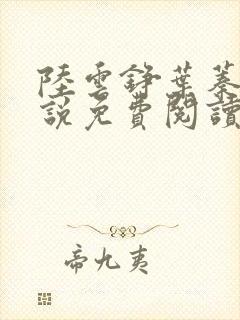 陸雲錚葉蓁
說免費閱讀
帝九夷